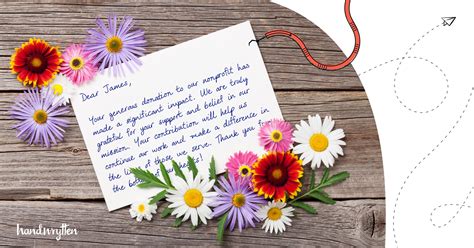 Dear James,
Your generous donation to our nonprofit has
made a significant impact. We are truly
grateful for your support and belief in our
mission. Your contribution will help us
continue our work and make a difference in
the lives of those we serve. Thank you
the bottom of our hearts!
handwrytten